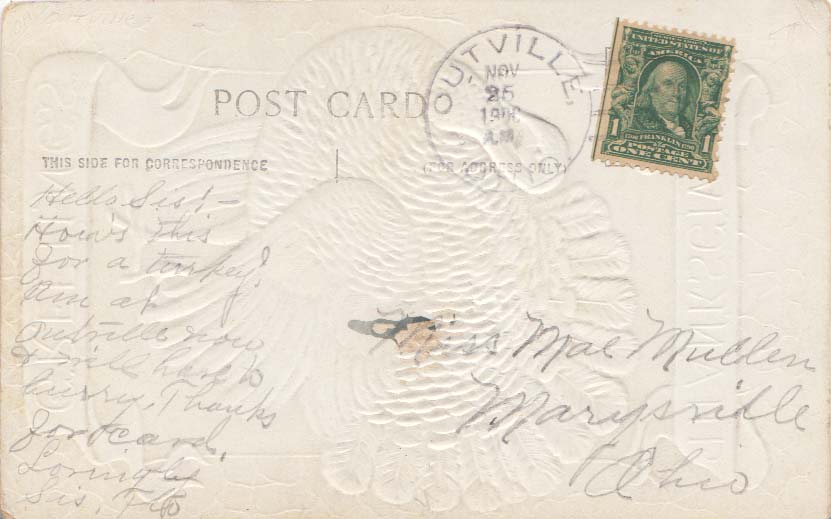 POST CARD
OUTVILLE,
NOV
25
A.M.
UNITED STATES OF
AMERICA
1 1790 FRANKLIN 1790 1
POSTAGE
ONE CENT
THIS SIDE FOR CORRESPONDENCE
(FOR ADDRESS ONLY)
Hello Sis! -
How's This
for a turkey!
Am at
Outville now
& will have to
hurry, Thanks
for card.
Lovingly
Sis, Flo
Miss Mae Mullen
Marysville
Ohio